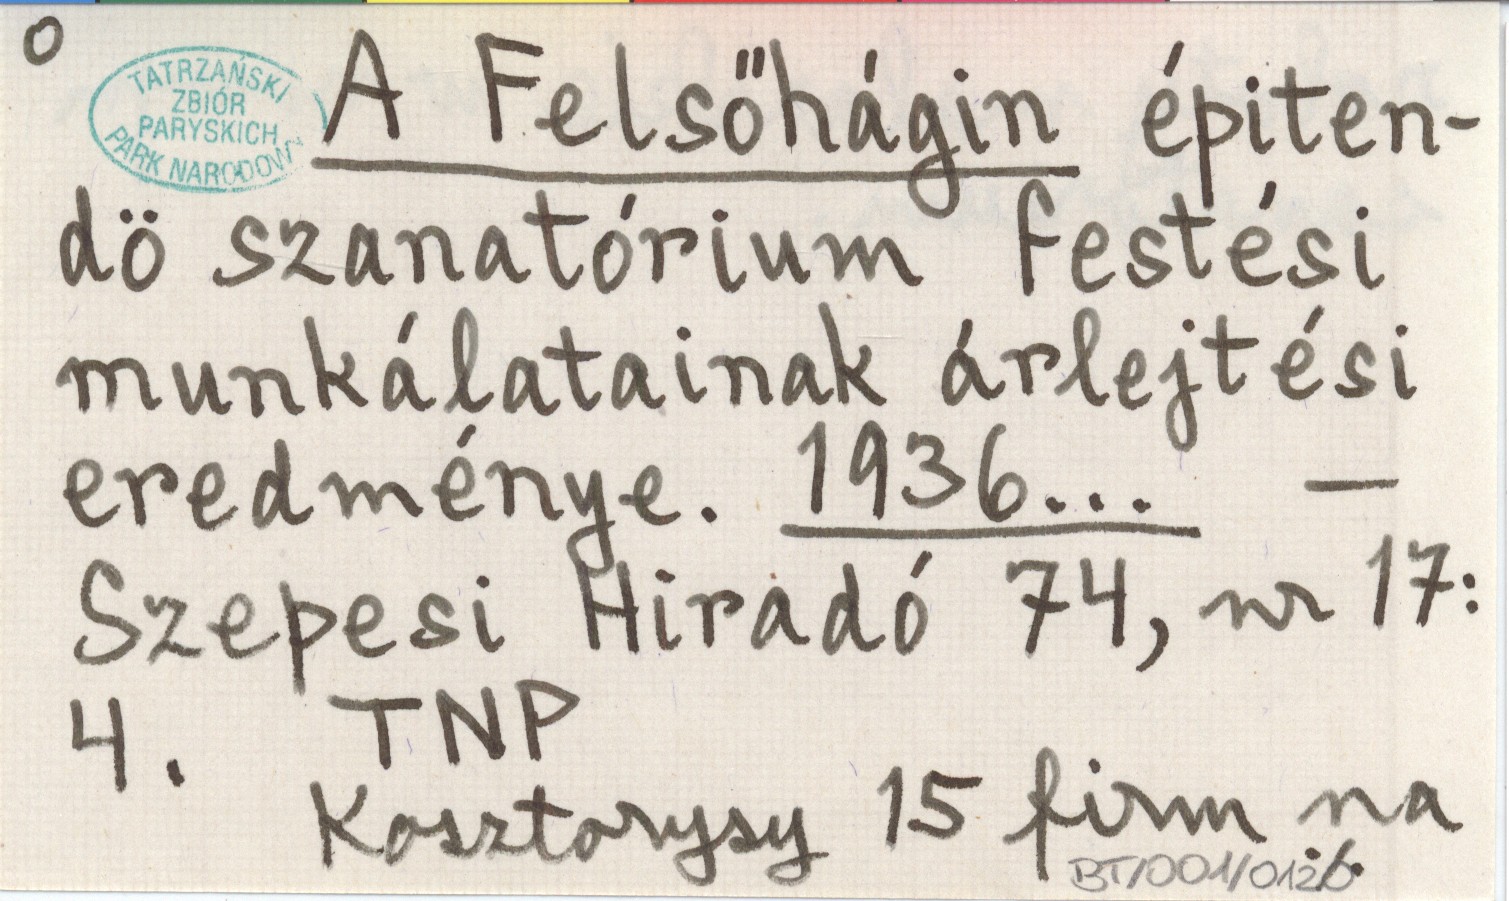 O
TATRZAŃSKI
ZBIÓR
PARYSKICH
PARK NARODOWY
A Felsőhágin épiten-
dö szanatórium festési
munkálatainak árlejtési
eredménye. 1936... —
Szepesi Hiradó 74, nr 17:
4. TNP
Kosztorysy 15 firm na
BT/001/012.6.